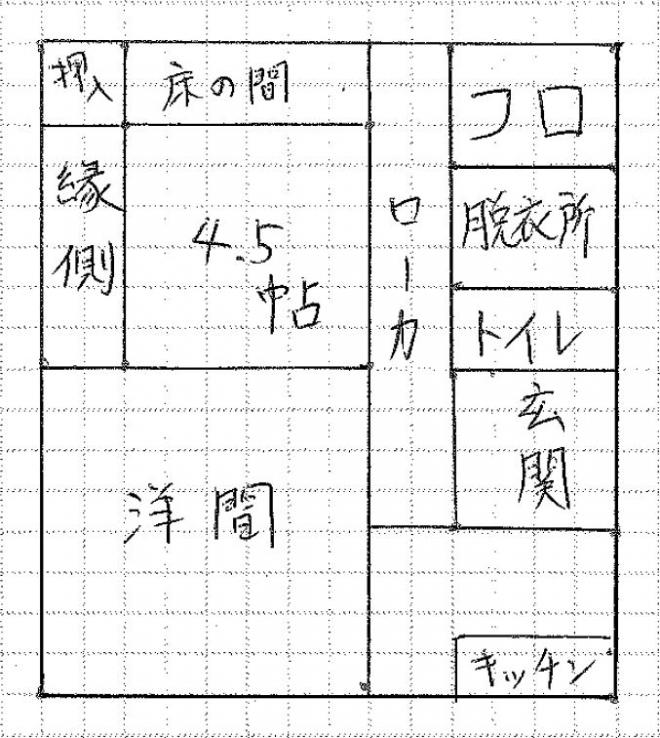 押入
床の間
フロ
縁側
4.5
帖
ローカ
脱衣所
トイレ
玄関
洋間
キッチン